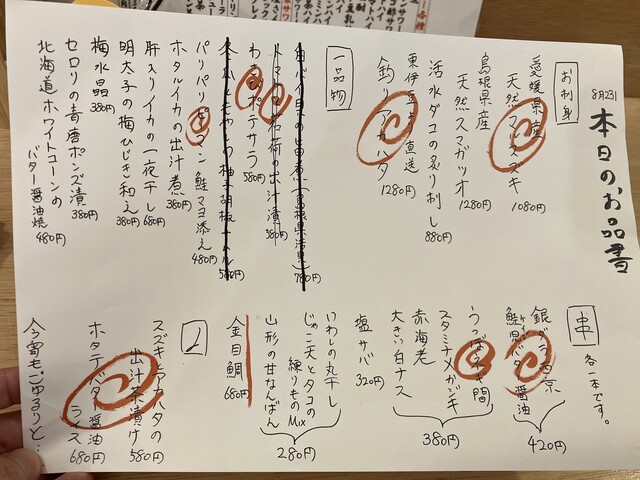 8月23日
本日のお品書
お刺身
愛媛県産
天然マルスズキ
1080円
島根県産
天然スマガツオ
1280円
活水ダコの炙り刺し
880円
東伊豆より直送
釣りアカハタ
1280円
一品物
780円
トマトと茗荷の出汁漬
380円
わさびポテサラ
580円
580円
パリパリピーマン 鮭マヨ添え
480円
ホタルイカの出汁煮
380円
肝入りイカの一夜干し
680円
明太子の梅ひじき和え
380円
梅水晶
380円
セロリの青唐ポンズ漬
380円
北海道ホワイトコーンの
バター醤油焼
480円
串
各一本です。
銀ダラ西京
鮭児バター醤油
420円
うつぼ
スタミナメカジキ
赤海老
大きい白ナス
380円
塩サバ
320円
いわしの丸干し
じゃこ天とタコの
練りものMix
山形の甘なんばん
280円
金目鯛
680円
〆
スズキとアカハタの
出汁茶漬け
580円
ホタテバター醤油
ライス
680円
今宵もごゆるりと…